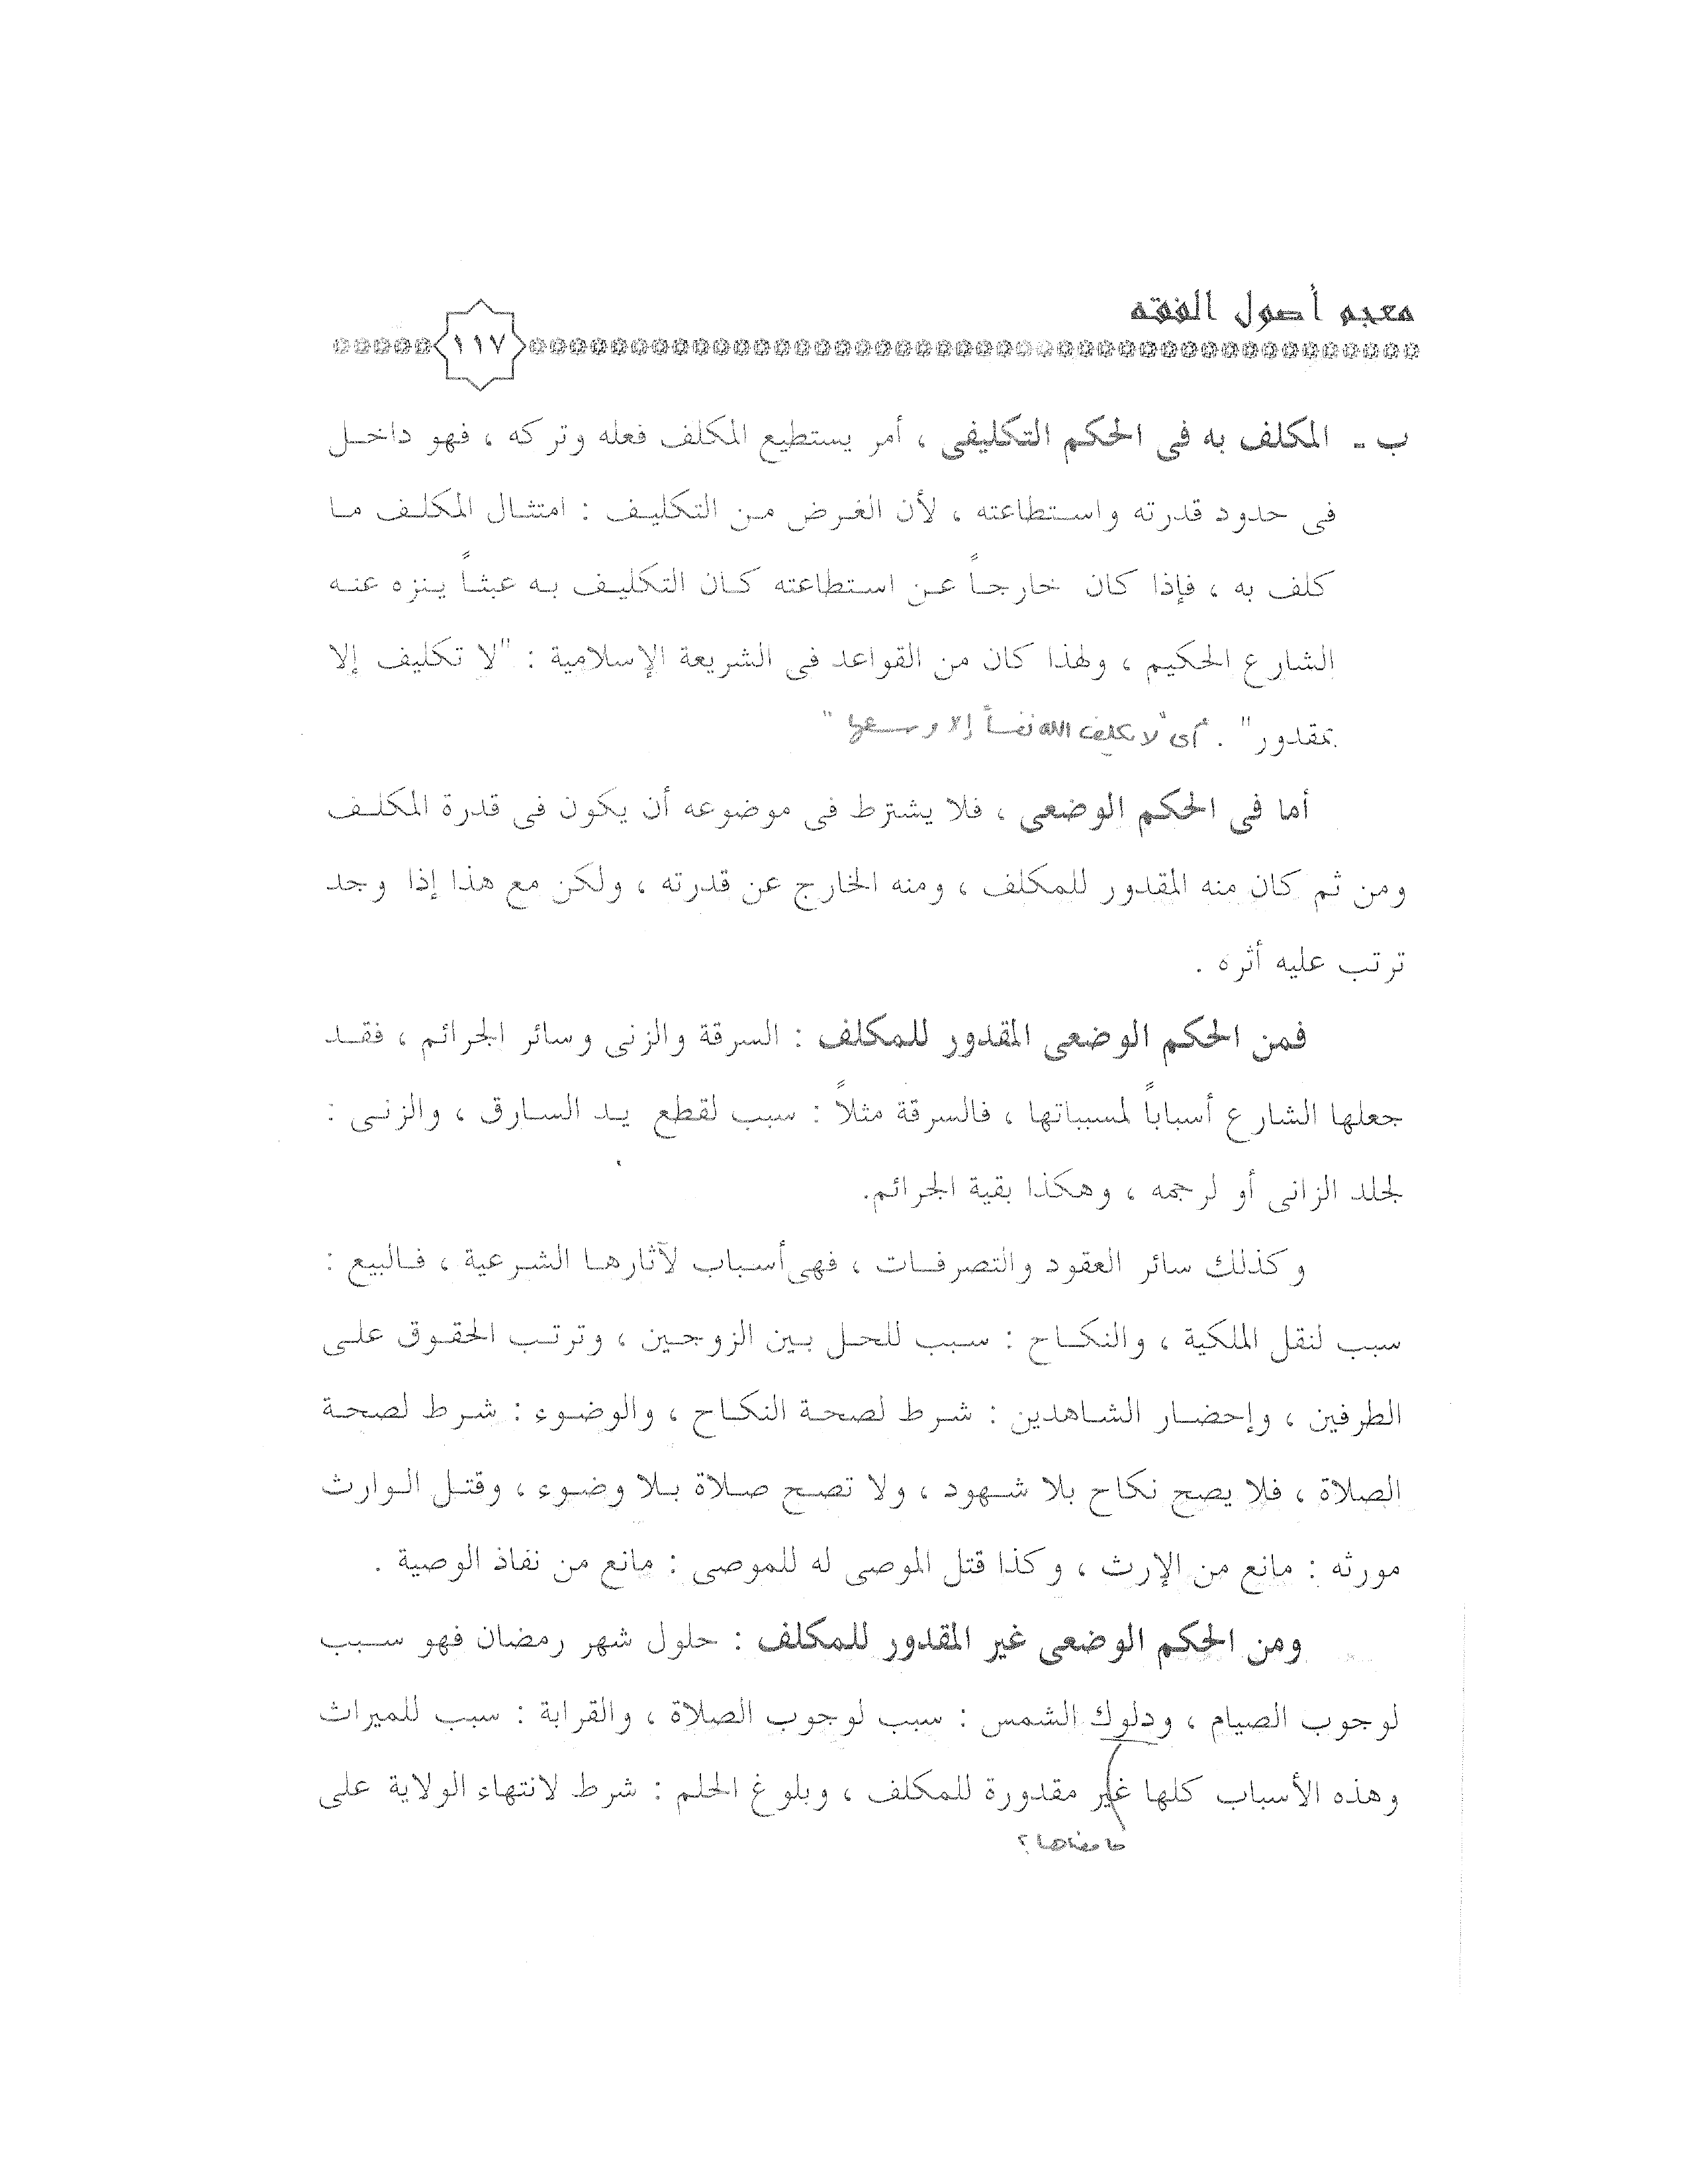 معجم أصول الفقه
١١٧
ب ـ المكلف به فى الحكم التكليفى ، أمر يستطيع المكلف فعله وتركه ، فهو داخل
فى حدود قدرته واستطاعته ، لأن الغرض من التكليف : امتثال المكلف ما
كلف به ، فإذا كان خارجاً عن استطاعته كان التكليف به عبثاً ينزه عنه
الشارع الحكيم ، ولهذا كان من القواعد فى الشريعة الإسلامية : "لا تكليف إلا
بمقدور" . أى "لا يكلف الله نفساً إلا وسعها"
أما فى الحكم الوضعى ، فلا يشترط فى موضوعه أن يكون فى قدرة المكلف
ومن ثم كان منه المقدور للمكلف ، ومنه الخارج عن قدرته ، ولكن مع هذا إذا وجد
ترتب عليه أثره .
فمن الحكم الوضعى المقدور للمكلف : السرقة والزنى وسائر الجرائم ، فقد
جعلها الشارع أسباباً لمسبباتها ، فالسرقة مثلاً : سبب لقطع يد السارق ، والزنى :
لجلد الزانى أو لرجمه ، وهكذا بقية الجرائم.
وكذلك سائر العقود والتصرفات ، فهى أسباب لآثارها الشرعية ، فالبيع :
سبب لنقل الملكية ، والنكاح : سبب للحل بين الزوجين ، وترتب الحقوق على
الطرفين ، وإحضار الشاهدين : شرط لصحة النكاح ، والوضوء : شرط لصحة
الصلاة ، فلا يصح نكاح بلا شهود ، ولا تصح صلاة بلا وضوء ، وقتل الوارث
مورثه : مانع من الإرث ، وكذا قتل الموصى له للموصى : مانع من نفاذ الوصية .
ومن الحكم الوضعى غير المقدور للمكلف : حلول شهر رمضان فهو سبب
لوجوب الصيام ، ودلوك الشمس : سبب لوجوب الصلاة ، والقرابة : سبب للميراث
وهذه الأسباب كلها غير مقدورة للمكلف ، وبلوغ الحلم : شرط لانتهاء الولاية على
ما معناها ؟